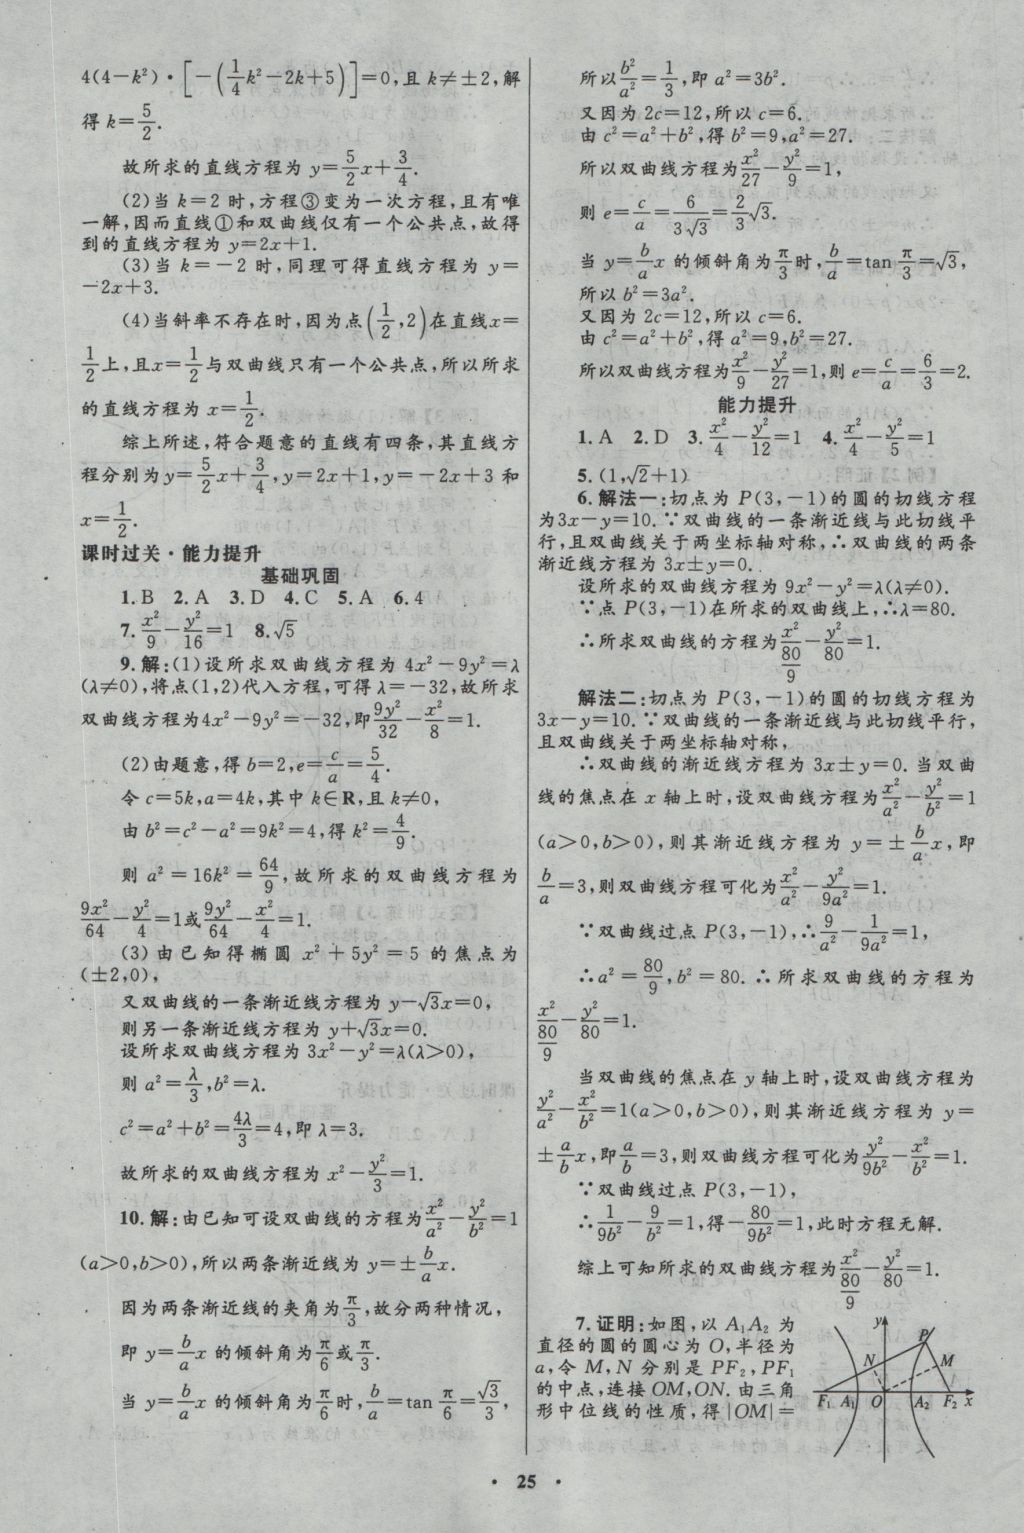 4(4-k²)·[-(1/4 k²-2k+5)]=0,且 k≠±2,解
得 k=5/2.
故所求的直线方程为 y=5/2 x+3/4.
(2)当 k=2 时,方程③变为一次方程,且有唯
一解,因而直线①和双曲线仅有一个公共点,故得
到的直线方程为 y=2x+1.
(3)当 k=-2 时,同理可得直线方程为 y=
-2x+3.
(4)当斜率不存在时,因为点(1/2,2)在直线x=
1/2上,且x=1/2与双曲线只有一个公共点,所以所求
的直线方程为 x=1/2.
综上所述,符合题意的直线有四条,其直线方
程分别为y=5/2 x+3/4,y=2x+1,y=-2x+3 和
x=1/2.
课时过关·能力提升
基础巩固
1.B 2.A 3.D 4.C 5.A 6.4
7.x²/9-y²/16=1 8.√5
9.解:(1)设所求双曲线方程为 4x²-9y²=λ
(λ≠0),将点(1,2)代入方程,可得 λ=-32,故所求
双曲线方程为4x²-9y²=-32,即9y²/32-x²/8=1.
(2)由题意,得 b=2,e=c/a=5/4.
令 c=5k,a=4k,其中 k∈R,且 k≠0,
由 b²=c²-a²=9k²=4,得 k²=4/9.
则 a²=16k²=64/9,故所求的双曲线方程为
9x²/64-y²/4=1或9y²/64-x²/4=1.
(3)由已知得椭圆 x²+5y²=5 的焦点为
(±2,0),
又双曲线的一条渐近线方程为 y-√3x=0,
则另一条渐近线方程为 y+√3x=0.
设所求双曲线方程为 3x²-y²=λ(λ>0),
则 a²=λ/3,b²=λ.
c²=a²+b²=4λ/3=4,即 λ=3.
故所求的双曲线方程为 x²-y²/3=1.
10.解:由已知可设双曲线的方程为x²/a²-y²/b²=1
(a>0,b>0),所以两条渐近线为 y=±b/a x.
因为两条渐近线的夹角为π/3,故分两种情况,
即 y=b/a x 的倾斜角为π/6或π/3.
当 y=b/a x 的倾斜角为π/6时,b/a=tan π/6=√3/3,
所以b²/a²=1/3,即 a²=3b².
又因为 2c=12,所以 c=6.
由 c²=a²+b²,得 b²=9,a²=27.
所以双曲线方程为x²/27-y²/9=1,
则 e=c/a=6/3√3=2/3√3.
当 y=b/a x 的倾斜角为π/3时,b/a=tan π/3=√3,
所以 b²=3a².
又因为 2c=12,所以 c=6.
由 c²=a²+b²,得 a²=9,b²=27.
所以双曲线方程为x²/9-y²/27=1,则 e=c/a=6/3=2.
能力提升
1.A 2.D 3.x²/4-y²/12=1 4.x²/4-y²/5=1
5.(1,√2+1)
6.解法一:切点为 P(3,-1)的圆的切线方程
为3x-y=10.∵双曲线的一条渐近线与此切线平
行,且双曲线关于两坐标轴对称,∴双曲线的两条
渐近线方程为 3x±y=0.
设所求的双曲线方程为 9x²-y²=λ(λ≠0).
∵点 P(3,-1)在所求的双曲线上,∴λ=80.
∴所求双曲线的方程为x²/(80/9)-y²/80=1.
解法二:切点为 P(3,-1)的圆的切线方程为
3x-y=10.∵双曲线的一条渐近线与此切线平行,
且双曲线关于两坐标轴对称,
∴双曲线的渐近线方程为 3x±y=0.当双曲
线的焦点在 x 轴上时,设双曲线方程为x²/a²-y²/b²=1
(a>0,b>0),则其渐近线方程为 y=±b/a x,即
b/a=3,则双曲线方程可化为x²/a²-y²/9a²=1.
∵双曲线过点 P(3,-1),∴9/a²-1/9a²=1,
∴a²=80/9,b²=80.∴所求双曲线的方程为
x²/(80/9)-y²/80=1.
当双曲线的焦点在 y 轴上时,设双曲线方程为
y²/a²-x²/b²=1(a>0,b>0),则其渐近线方程为 y=
±a/b x,即a/b=3,则双曲线方程可化为y²/9b²-x²/b²=1.
∵双曲线过点 P(3,-1),
∴1/9b²-9/b²=1,得-80/9b²=1,此时方程无解.
综上可知所求的双曲线方程为x²/(80/9)-y²/80=1.
7.证明:如图,以 A₁A₂ 为
直径的圆的圆心为 O,半径为
a,令 M,N 分别是 PF₂,PF₁
的中点,连接 OM,ON.由三角
形中位线的性质,得|OM|=
y
P
N
M
F₁ A₁ O A₂ F₂ x
· 25 ·